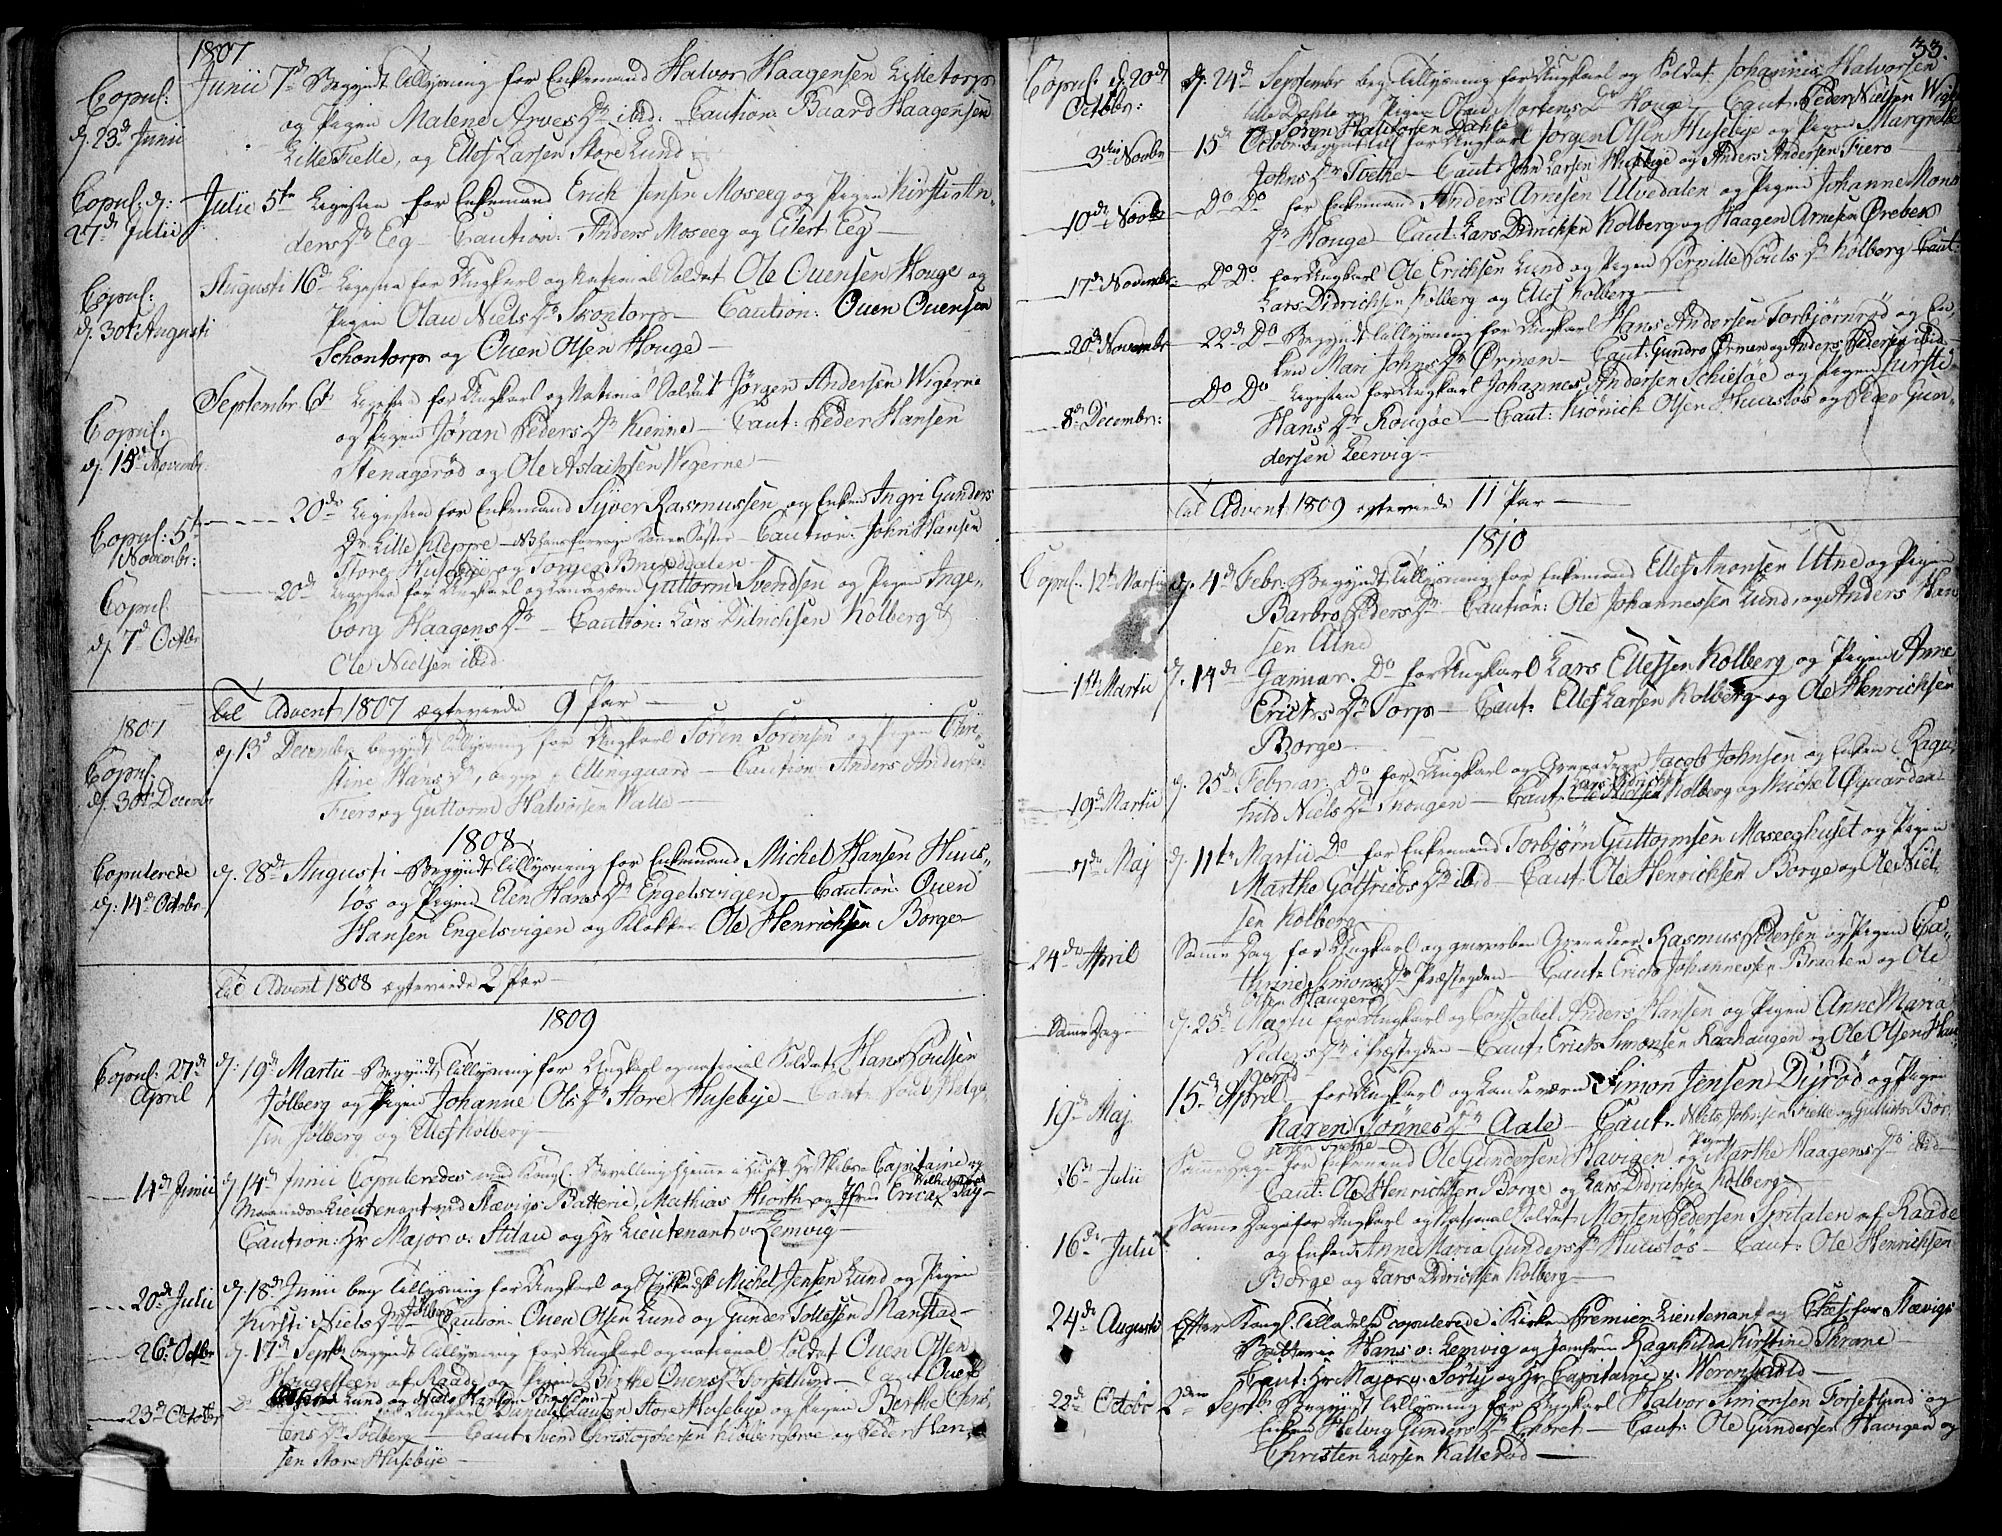 1807
Copul: d. 23d Junii
Junii 7de Begyndt Tillysning for Enkemand Halvor Haagensen Lilletorp
og Pigen Malene Arves Dr ibid: Caution: Baard Haagensen
Lille Fielle, og Ellef Larsen Store Lund
Copul: d: 27d Julii
Julii 5te Ligesaa for Enkemand Erich Jensen Moseeg og Pigen Kirstin An-
ders Dr Eeg - Caution: Anders Moseeg og Eilert Eeg -
Copul: d. 30te Augusti
Augusti 16d Ligesaa for Ungkarl og National Soldat Ole Ouensen Houge og
Pigen Olau Niels Dr Skontorp - Caution: Ouen Ouensen
Schontorp og Ouen Olsen Houge -
Copul: d. 15d Novembr:
Septembr 6te Ligesaa for Ungkarl og National Soldat Jørgen Andersen Wigerne
og Pigen Jøran Peders Dr Kienne - Caut: Peder Hansen
Stenagerød og Ole Aslachsen Wigerne -
Copul: 5te Novembr:
20de Ligesaa for Enkemand Syver Rasmussen og Enken Ingri Gunders
Dr Lille Kleppe - Caution: John Hansen
Store Husebye og Jørgen
Copul: d. 7d Octbr
20d Ligesaa for Ungkarl og Landeværn Guttorm Svendsen og Pigen Inge-
borg Haagens Dr - Caution: Lars Didrichsen Kolberg &
Ole Nielsen ibid
Til Advent 1807 ægteviede 9 Par -
1807
Copul: d. 30te Decembr
d. 13d Decembr begyndt Tillysning for Ungkarl Søren Sørensen og Pigen Chri-
stine Hans Dr, begge p: Ellinggaard - Caution: Anders Andersen
Fiero og Guttorm Halvorsen Valle -
1808
Copulerede d. 14d Octobr
d. 28de Augusti Begyndt Tillysning for Enkemand Michel Hansen Huus-
løs og Pigen Elen Hans Dr Engelsvigen - Caution: Ouen
Hansen Engelsvigen og Klokker Ole Henrichsen Borge
Til Advent 1808 ægteviede 2 Par -
1809
Copul: 27de April
d. 19de Martii Begyndt Tillysning for Ungkarl og national Soldat Hans Poulsen
Jølberg og Pigen Johanne Ols Dr Store Husebye - Caut: Poul Helge-
sen Jølberg og Ellef Kolberg -
14de Junii
d. 14de Junii Copuleredes med Kongl: Bevilling hjemme i Huset Hr Skibs Capitaine og
Maaneds Lieutenant ved Slævigs Batterie, Mathias Hiorth og Jfru Erica
Caution: Hr Major v: Stilau og Hr Lieutenant v: Lemvig -
20de Julii
d. 18de Junii beg: Tillysning for Ungkarl og Michel Jensen Lund og Pigen
Kirsti Niels Dr Jølberg Caution: Ouen Olsen Lund og Gunder Tollefsen Manstad -
26d Octbr
d. 17de Septbr begyndt Tillysning for Ungkarl og national Soldat Ouen Olsen
Hougesteen af Raade og Pigen Birthe Ouens Dr Torsetlund - Caut: Ouen
Lund og Niels
23de Octobr
Do for Ungkarl Daniel Clausen Store Husebye og Pigen Berthe Chris-
tens Dr Sødberg - Caut: Svend Christophersen Kløvningsroe og Peder Han-
sen Store Husebye -
33.
Copul: d. 20de Octbr:
d. 24de Septembr beg: Tillysning for Ungkarl og Soldat Johannes Halvorsen
Lille Dahle og Pigen Olau Mortens Dr Houge - Caut: Peder Nielsen
og Søren Halvorsen Dahle
3die Novbr
15de Octobr: begyndt Till: for Ungkarl Jørgen Olsen Husebye og Pigen Margrethe
Johns Dr Tvethe - Caut: John Larsen Husebye og Anders Andersen Fiero -
10de Novbr
Do Do for Enkemand Anders Arnesen Ulvedalen og Pigen Johanne Mons
Dr Houge - Caut: Lars Didrichsen Kolberg og Haagen Arnesen Ørebek
17de Novembr
Do Do for Ungkarl Ole Erichsen Lund og Pigen Pernille Pouls Dr Kolberg - Caut:
Lars Didrichsen Kolberg og Ellef Kolberg -
20de Novembr
22de Do Begyndt Tillysning for Ungkarl Hans Andersen Torbjørnrød og En-
ken Mari Johns Dr Ørmen - Caut: Gundro Ørmen og Anders Pedersen ibid -
8de Decembr:
Do Do Ligesaa for Ungkarl Johannes Andersen Schielsøe og Pigen Kirsti
Hans Dr Rougøe - Caut: Krønich Olsen Huusløs og Peder Gun-
dersen Leervig -
Til Advent 1809 ægteviede 11 Par -
1810
Copul: 12te Martii
d. 4de Febr: Begyndt Tillysning for Enkemand Ellef Anonsen Utne og Pigen
Barbro Peders Dr - Caution: Ole Johannessen Lund og Anders Han-
sen Alne
1ste Martii
d. 14de Januar. Do for Ungkarl Lars Ellefsen Kolberg og Pigen Anne
Erichs Dr Torp - Caut: Ellef Larsen Kolberg og Ole Henrichsen
Borge -
19de Martii
d. 25de Februar. Do for Ungkarl og Grenadeer Jacob Johnsen og Enken Ragn-
hild Niels Dr Snougen - Caut: Lars Didrichs: Kolberg og Michel Øegaarden -
7de Maj
d. 11te Martii Do for Enkemand Torbjørn Guttormsen Moseeghuset og Pigen
Marthe Gotfrids Dr ibid - Caut: Ole Henrichsen Borge og Ole Niel-
sen Kolberg -
24de April
Samme Dag for Ungkarl og gevorben Grenadeer Rasmus Pedersen og Pigen Ca-
thrine Simons Dr Præstegden - Caut: Erich Johannessen Braaten og Ole
Olsen Haugerød
Samme Dag
d. 25de Martii for Ungkarl og Constabel Anders Hansen og Pigen Anne Maria
Peders Dr i Præstegden - Caut: Erich Simonsen Raahaugen og Ole Olsen Hau-
gerød
19de Maj
15de April for Ungkarl og Landeværn Simon Jensen Dyrød og Pigen
Karen Tønnes Dr Aale - Caut: Niels Johnsen Fielle og
16d Julii
Samme Dag for Enkemand Ole Gundersen Havigen og Pigen Marthe Haagens Dr ibid -
Caut: Ole Henrichsen Borge og Lars Didrichsen Kolberg -
16de Julii
Samme Dag for Ungkarl og National Soldat Morten Pedersen Spitalen af Raade
og Enken Anne Maria Gunders Dr Huusløs - Caut: Ole Henrichsen
Borge og Lars Didrichsen Kolberg -
24de Augusti
Efter Kongl: Tilladelse copulerede i Kirken Premier Lieutenant og Chef for Slævigs
Batterie Hans v: Lemvig og Jomfrue Ragnhilda Kirstine Thrane -
Caut: Hr Major v: Sørly og Hr Capitaine v. Werenskiold -
22de Octobr
2den Septbr Begyndt Tillysning for Ungkarl Halvor Simonsen Torsetlund og
Enken Helvig Gunders Dr Enoret - Caut: Ole Gundersen Havigen og
Christen Larsen Kallerød -